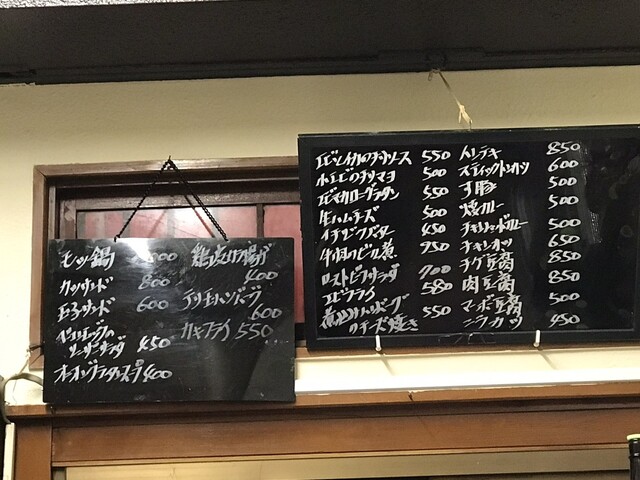 モツ鍋 500
カツサンド 800
玉子サンド 600
ベビーリーフの
シーザーサラダ 450
オニオングラタンスープ 400
鶏皮の唐揚げ
400
テリチキハンバーグ
600
カキフライ 550
エビとイカのチリソース 550
小エビのチリマヨ 500
エビマカログラタン 550
生ハムチーズ 500
イチジクバター 450
牛ほほ肉のビール煮 950
ローストビーフサラダ 700
エビフライ 580
煮込みハンバーグ 550
のチーズ焼き
トンテキ 850
スティックトンカツ 600
す豚 500
焼カレー 500
チキントッドカレー 500
チキンカツ 650
チゲ豆腐 850
肉豆腐 850
マーボ豆腐 500
ニラカツ 450